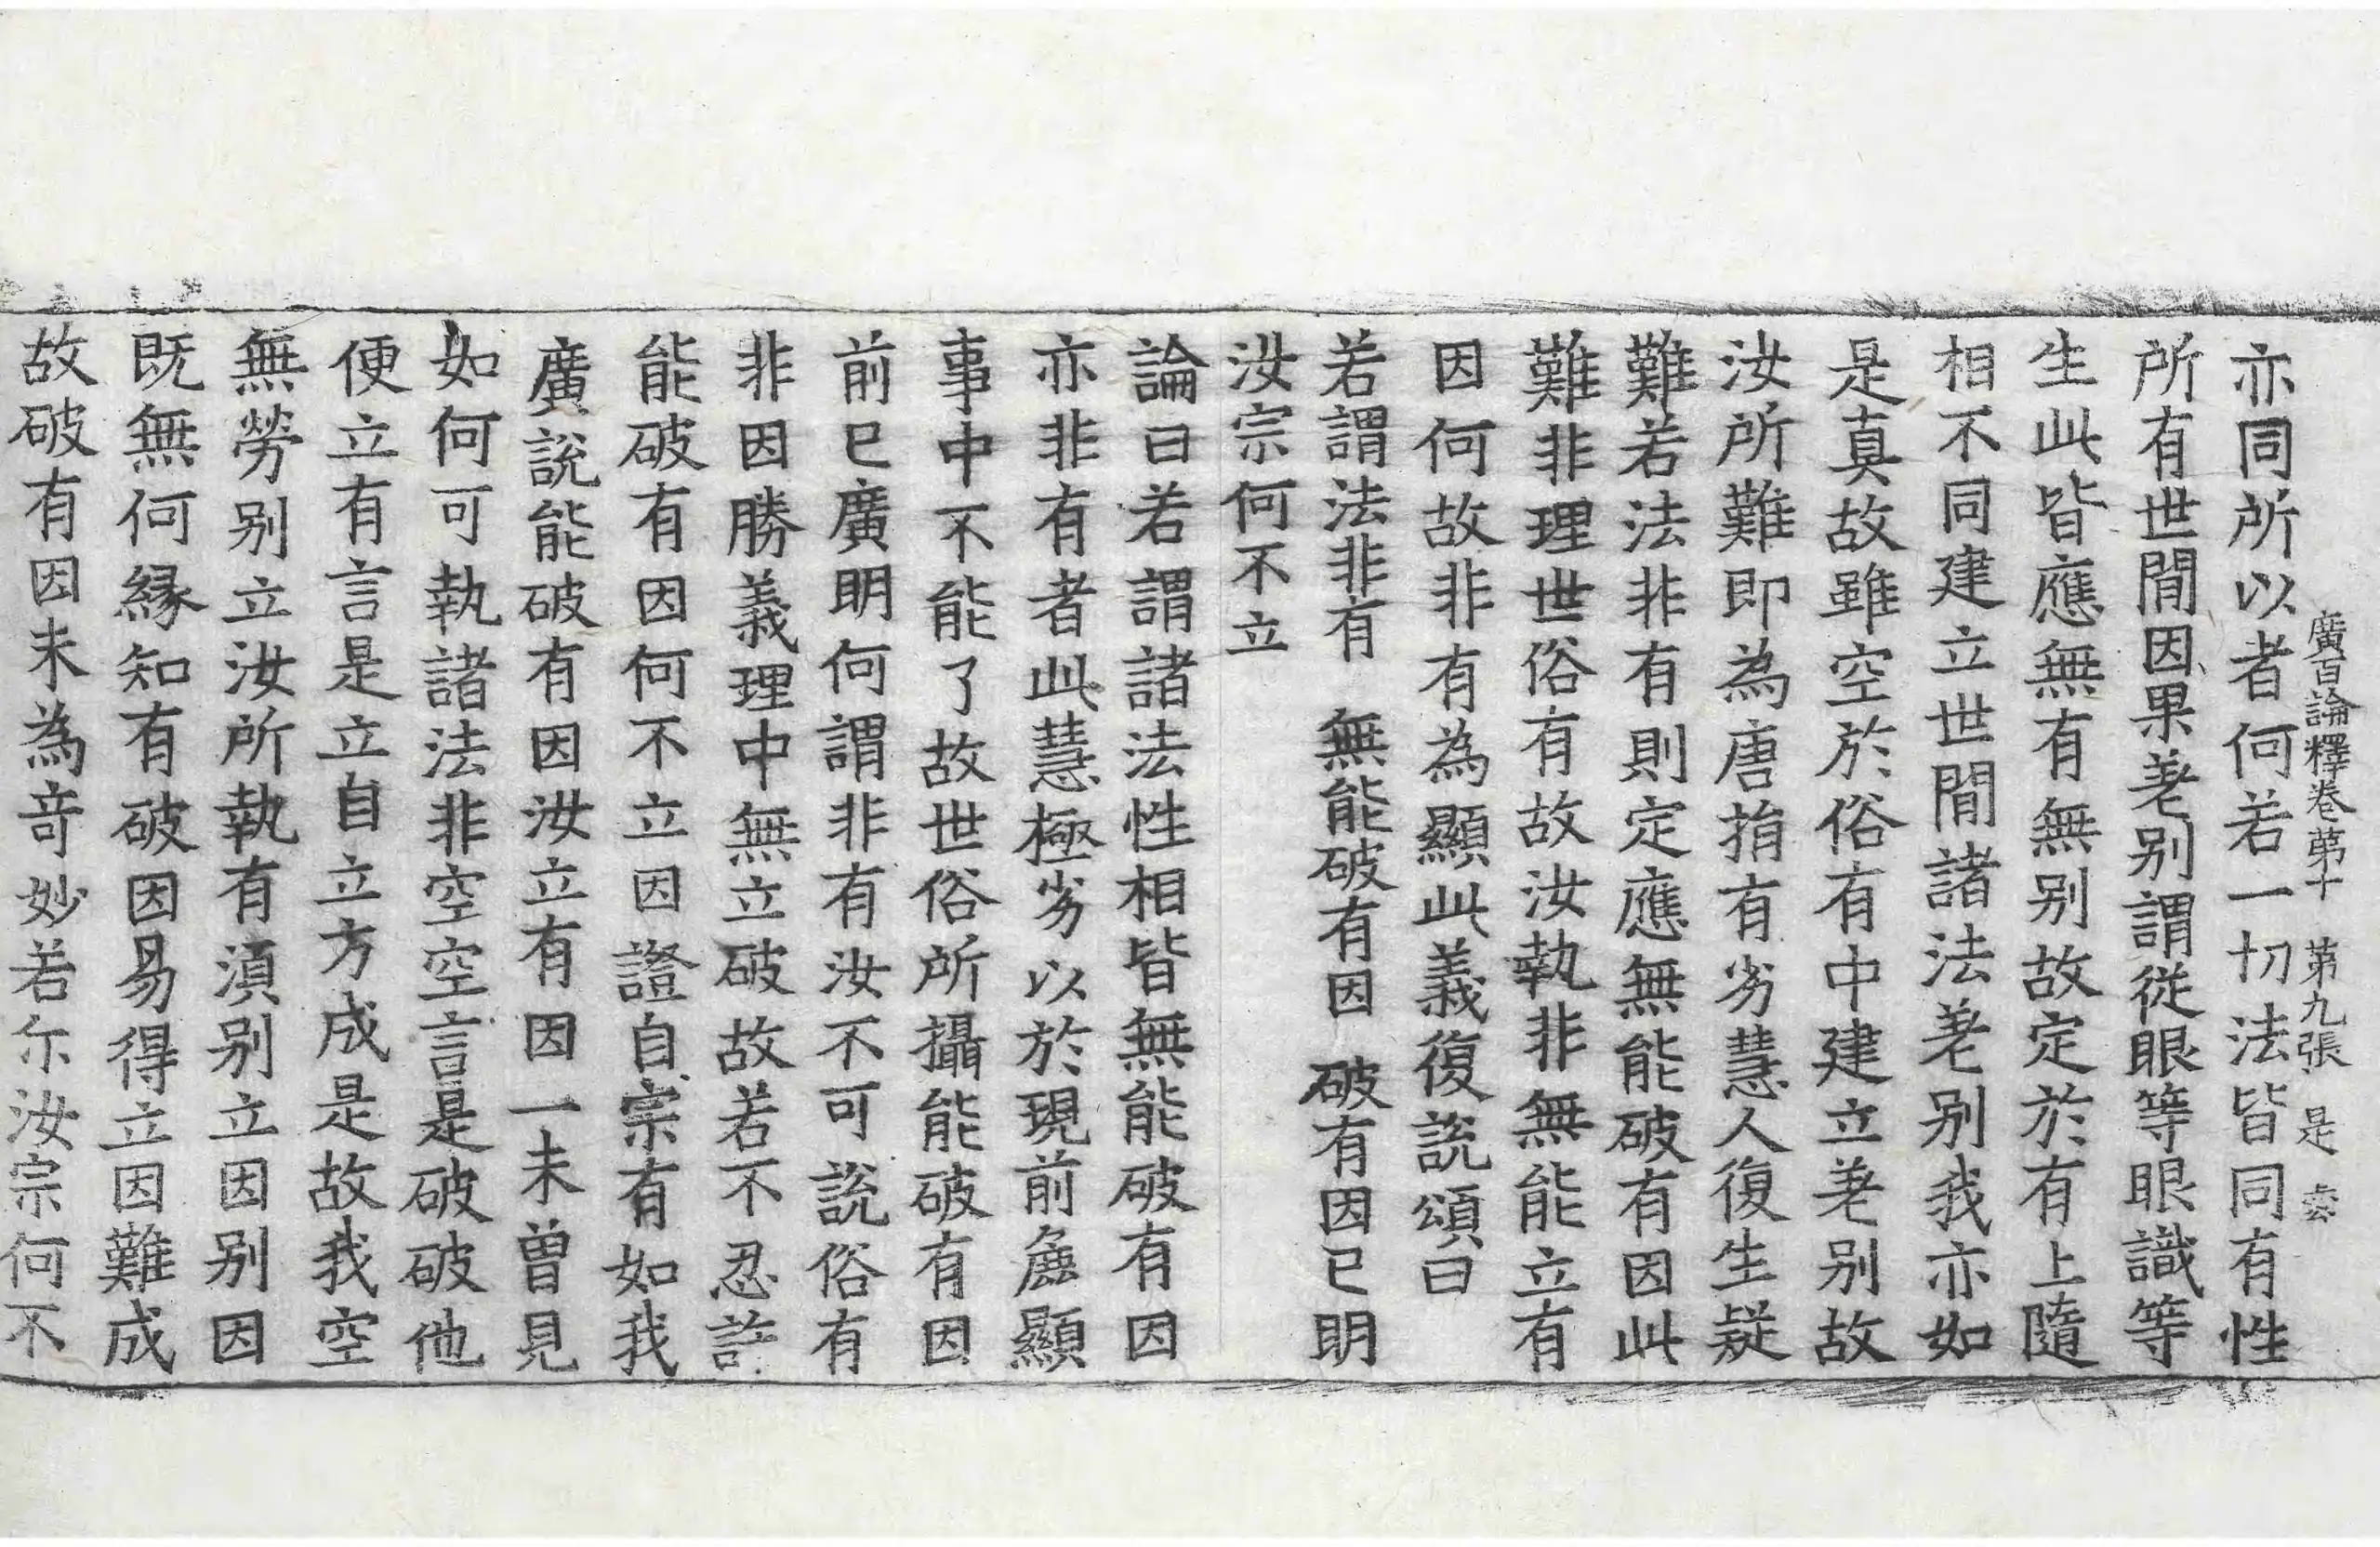 廣百論釋卷苐十　第九張　是
亦同所以者何若一切法皆同有性
所有世間因果差别謂從眼等眼識等
生此皆應無有無别故定於有上隨
相不同建立世間諸法差别我亦如
是真故雖空於俗有中建立差别故
汝所難即為唐捐有劣慧人復生疑
難若法非有則定應無能破有因此
難非理世俗有故汝執非無能立有
因何故非有為顯此義復說頌曰
若謂法非有　無能破有因　破有因已明
汝宗何不立
論曰若謂諸法性相皆無能破有因
亦非有者此慧極劣以於現前麁顯
事中不能了故世俗所攝能破有因
前已廣明何謂非有汝不可說俗有
非因勝義理中無立破故若不忍許
能破有因何不立因證自宗有如我
廣說能破有因汝立有因一未曽見
如何可執諸法非空空言是破破他
便立有言是立自立方成是故我空
無勞别立汝所執有湏别立因别因
既無何縁知有破因易得立因難成
故破有因未為竒妙若尓汝宗何不